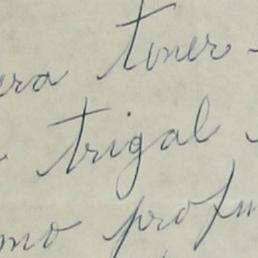 era tener-
trigal
mo profu